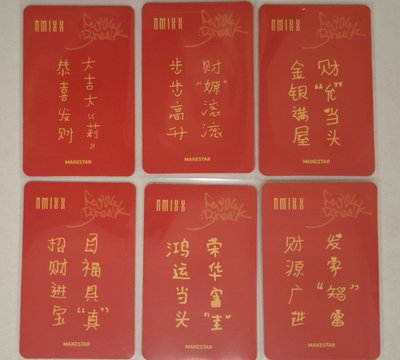 NMIXX
Fe3O4: Break
大吉大“莉”
恭喜发财
MAKESTAR
NMIXX
Fe3O4: Break
财“嫄”滚滚
步步高升
MAKESTAR
NMIXX
Fe3O4: Break
财“允”当头
金银满屋
MAKESTAR
NMIXX
Fe3O4: Break
百福具“真”
招财进宝
MAKESTAR
NMIXX
Fe3O4: Break
荣华富“圭”
鸿运当头
MAKESTAR
NMIXX
Fe3O4: Break
发家“智”富
财源广进
MAKESTAR